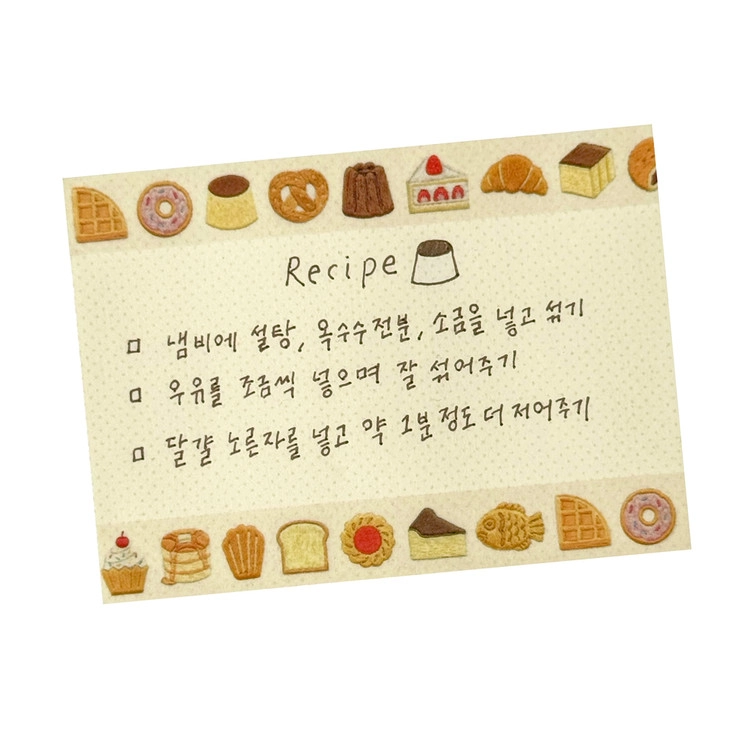 Recipe
□ 냄비에 설탕, 옥수수전분, 소금을 넣고 섞기
□ 우유를 조금씩 넣으며 잘 섞어주기
□ 달걀 노른자를 넣고 약 1분 정도 더 저어주기